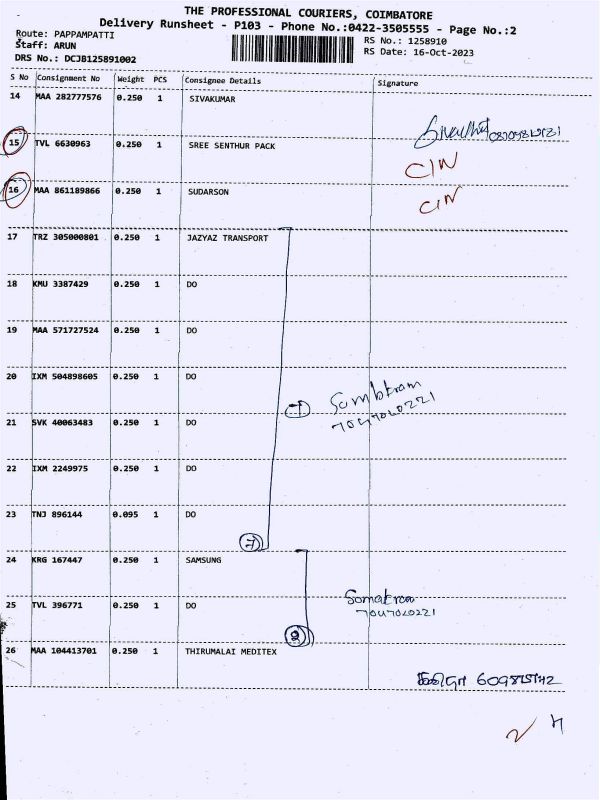 THE PROFESSIONAL COURIERS, COIMBATORE
Delivery Runsheet - P103 - Phone No.:0422-3505555 - Page No.:2
Route: PAPPAMPATTI
Staff: ARUN
DRS No.: DCJB125891002
RS No.: 1258910
RS Date: 16-Oct-2023
S No Consignment No Weight PCS Consignee Details Signature
14 MAA 282777576 0.250 1 SIVAKUMAR
15 TVL 6630963 0.250 1 SREE SENTHUR PACK C/N
16 MAA 861189866 0.250 1 SUDARSON C/N
17 TRZ 305000801 0.250 1 JAZYAZ TRANSPORT
18 KMU 3387429 0.250 1 DO
19 MAA 571727524 0.250 1 DO
20 IXM 504898605 0.250 1 DO
21 SVK 40063483 0.250 1 DO
22 IXM 2249975 0.250 1 DO
23 TNJ 896144 0.095 1 DO
7
24 KRG 167447 0.250 1 SAMSUNG
25 TVL 396771 0.250 1 DO
2
26 MAA 104413701 0.250 1 THIRUMALAI MEDITEX